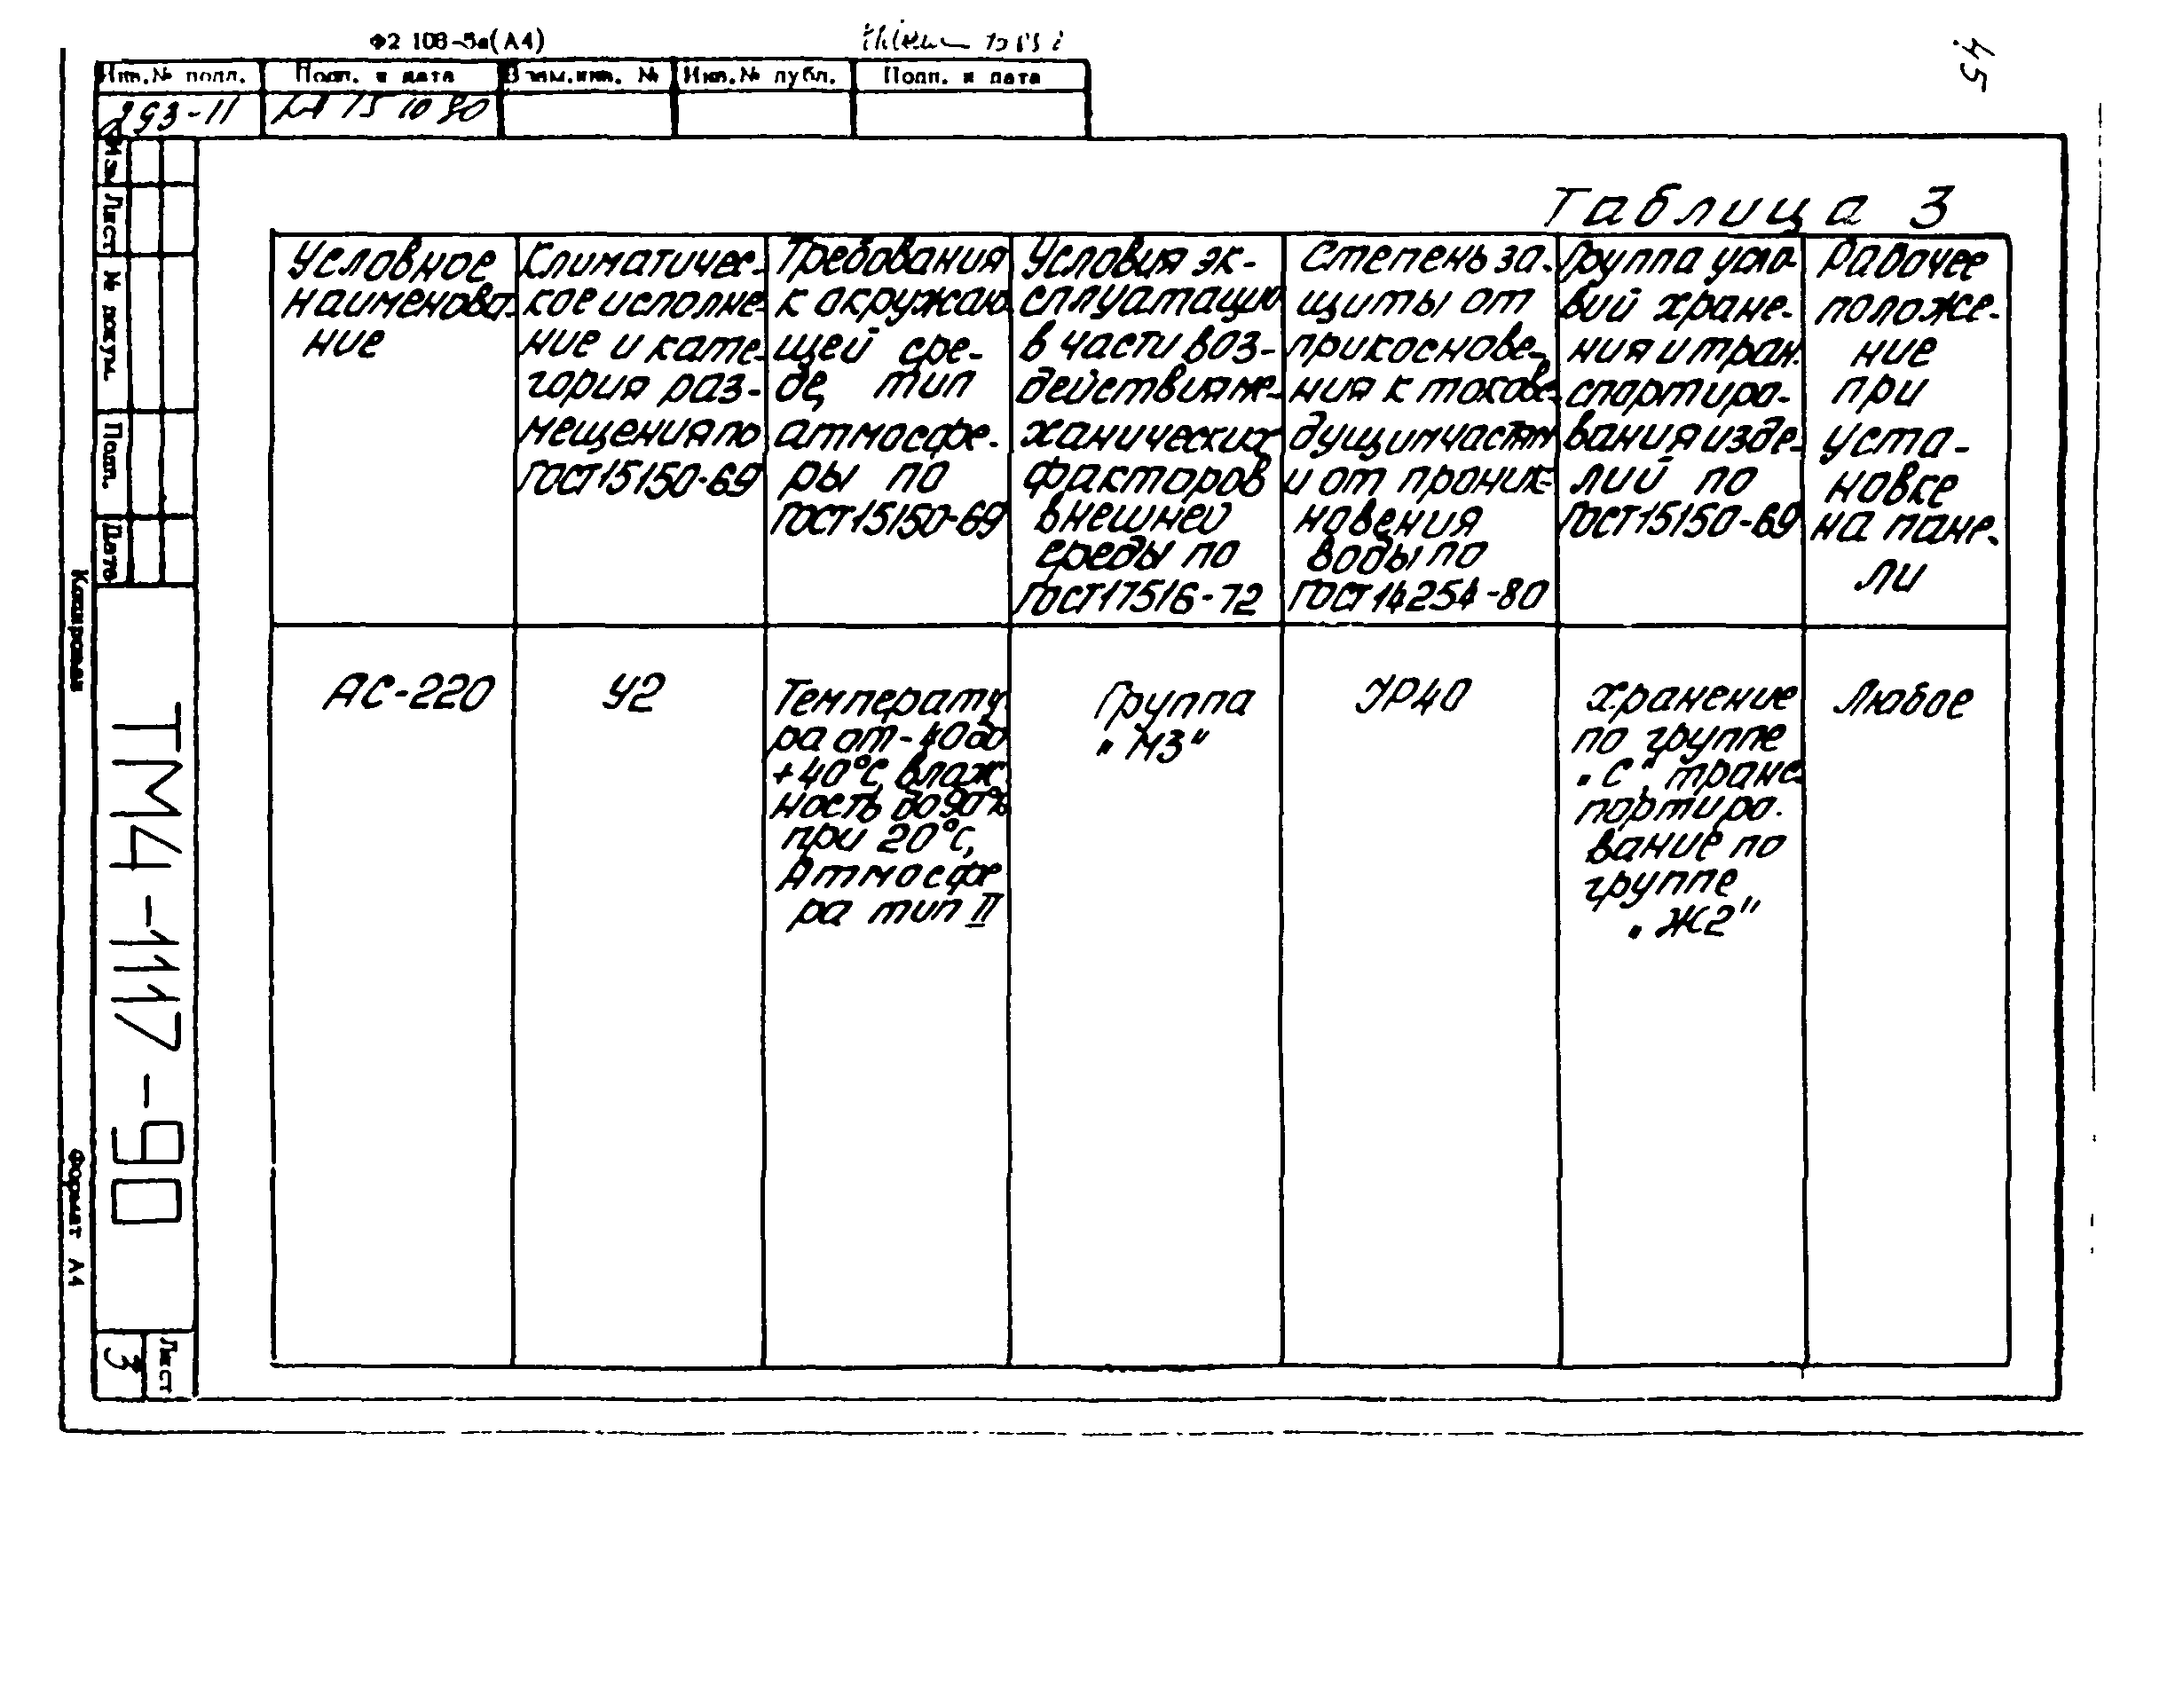 Ф2 108-5а(А4)
45
Инв.№ подл.
Подп. и дата
Взам.инв. №
Инв.№ дубл.
Подп. и дата
15 10 90
Изм
Лист
№ докум.
Подп.
Дата
Копировал
Формат А4
ТМ4-1117-90
Лист
3
Таблица 3
Условное
наименова-
ние
Климатичес-
кое исполне-
ние и кате-
гория раз-
мещения по
ГОСТ 15150-69
Требования
к окружаю
щей сре-
де, тип
атмосфе-
ры по
ГОСТ 15150-69
Условия эк-
сплуатации
в части воз-
действия ме-
ханических
факторов
внешней
среды по
ГОСТ 17516-72
Степень за-
щиты от
прикоснове-
ния к токове-
дущим частям
и от проник-
новения
воды по
ГОСТ 14254-80
Группа усло-
вий хране-
ния и тран-
спортиро-
вания изде-
лий по
ГОСТ 15150-69
Рабочее
положе-
ние
при
уста-
новке
на пане-
ли
АС-220
У2
Температу
ра от -40 до
+40°С, влаж
ность до 90%
при 20°С,
Атмосфе
ра тип II
Группа
„М3"
УР40
хранение
по группе
„С", транс
портиро-
вание по
группе
„Ж2"
Любое